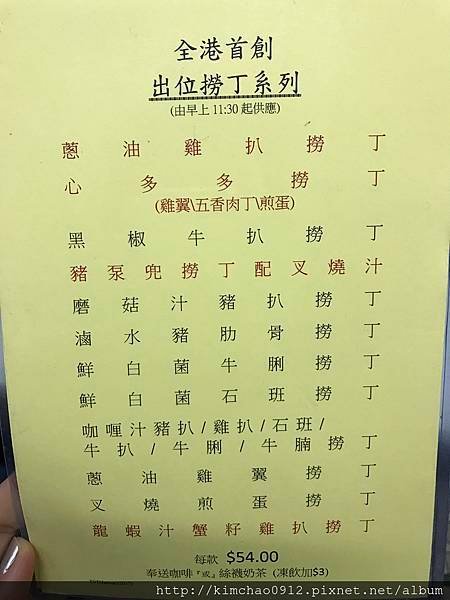 全港首創
出位撈丁系列
(由早上 11:30 起供應)
蔥油雞扒撈丁
心多多撈丁
(雞翼\五香肉丁\煎蛋)
黑椒牛扒撈丁
豬泵兜撈丁配叉燒汁
磨菇汁豬扒撈丁
滷水豬肋骨撈丁
鮮白菌牛脷撈丁
鮮白菌石班撈丁
咖喱汁豬扒/雞扒/石班/
牛扒/牛脷/牛腩撈丁
蔥油雞翼撈丁
叉燒煎蛋撈丁
龍蝦汁蟹籽雞扒撈丁
每款 $54.00
奉送咖啡『或』絲襪奶茶 (凍飲加$3)
http://kimchao0912.pixnet.net/album